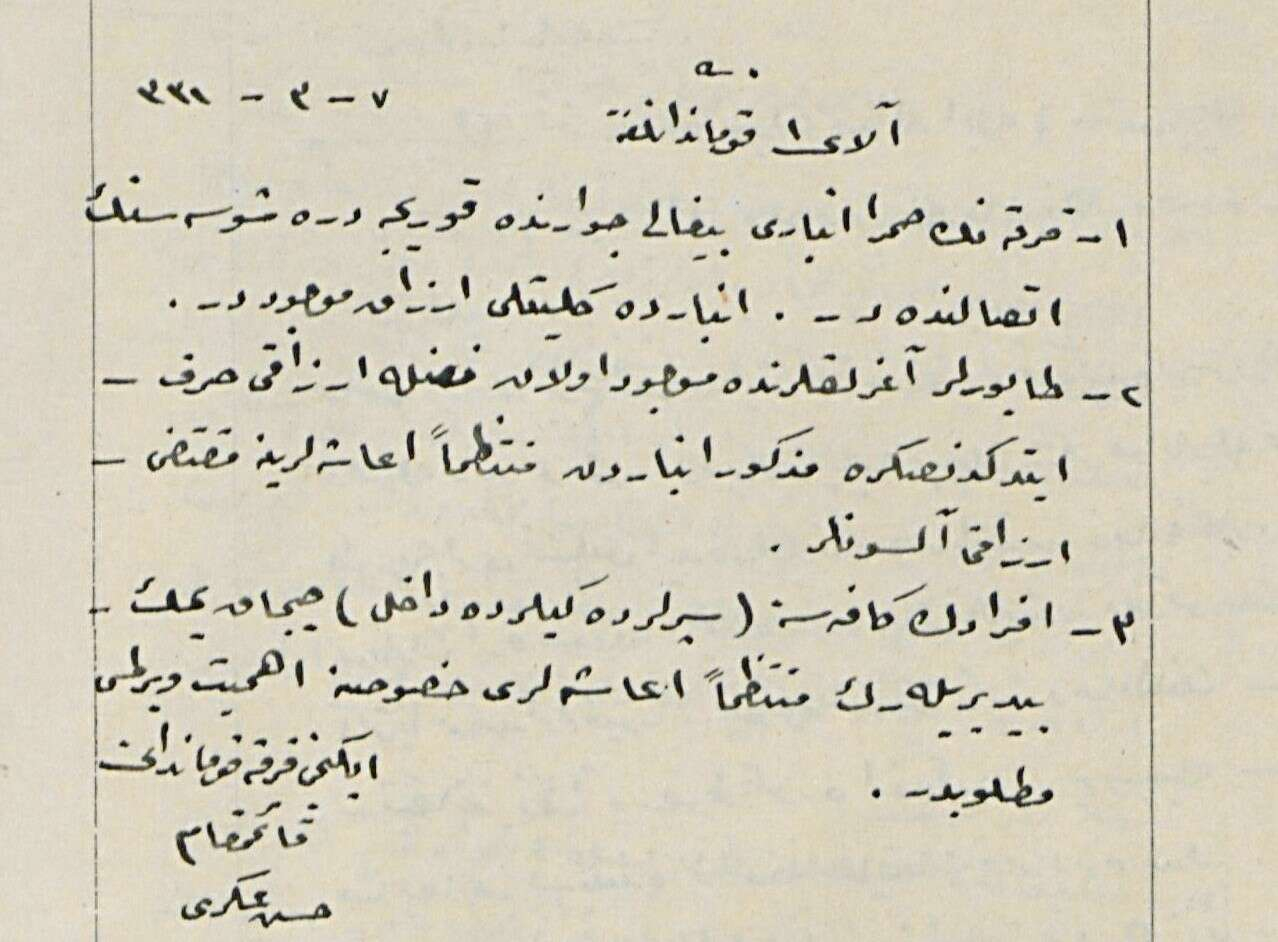 ٧ - ٣ - ٣٣١
آلای ١ قوماندانلغنه
١- فرقه نك صحرا انباری بيغالی جوارنده قوريجه دره شوسه سنك
اتصالنده در . انبارده كليتلی ارزاق موجوددر .
٢- طابورلر آغرلقلرنده موجود اولان فضله ارزاقی صرف -
ايتدكدنصكره مذكور انباردن منتظماً اعاشه لرينه مقتضی -
ارزاقی آلسونلر .
٣- افرادك كافه سنه ( سپرلرده كيلرده داخل ) صيجاق يمك -
يديريله رك منتظماً اعاشه لری خصوصنه اهميت ويرلمسی
مطلوبدر .
ايكنجی فرقه قوماندانی
قائممقام
حسن عسكری